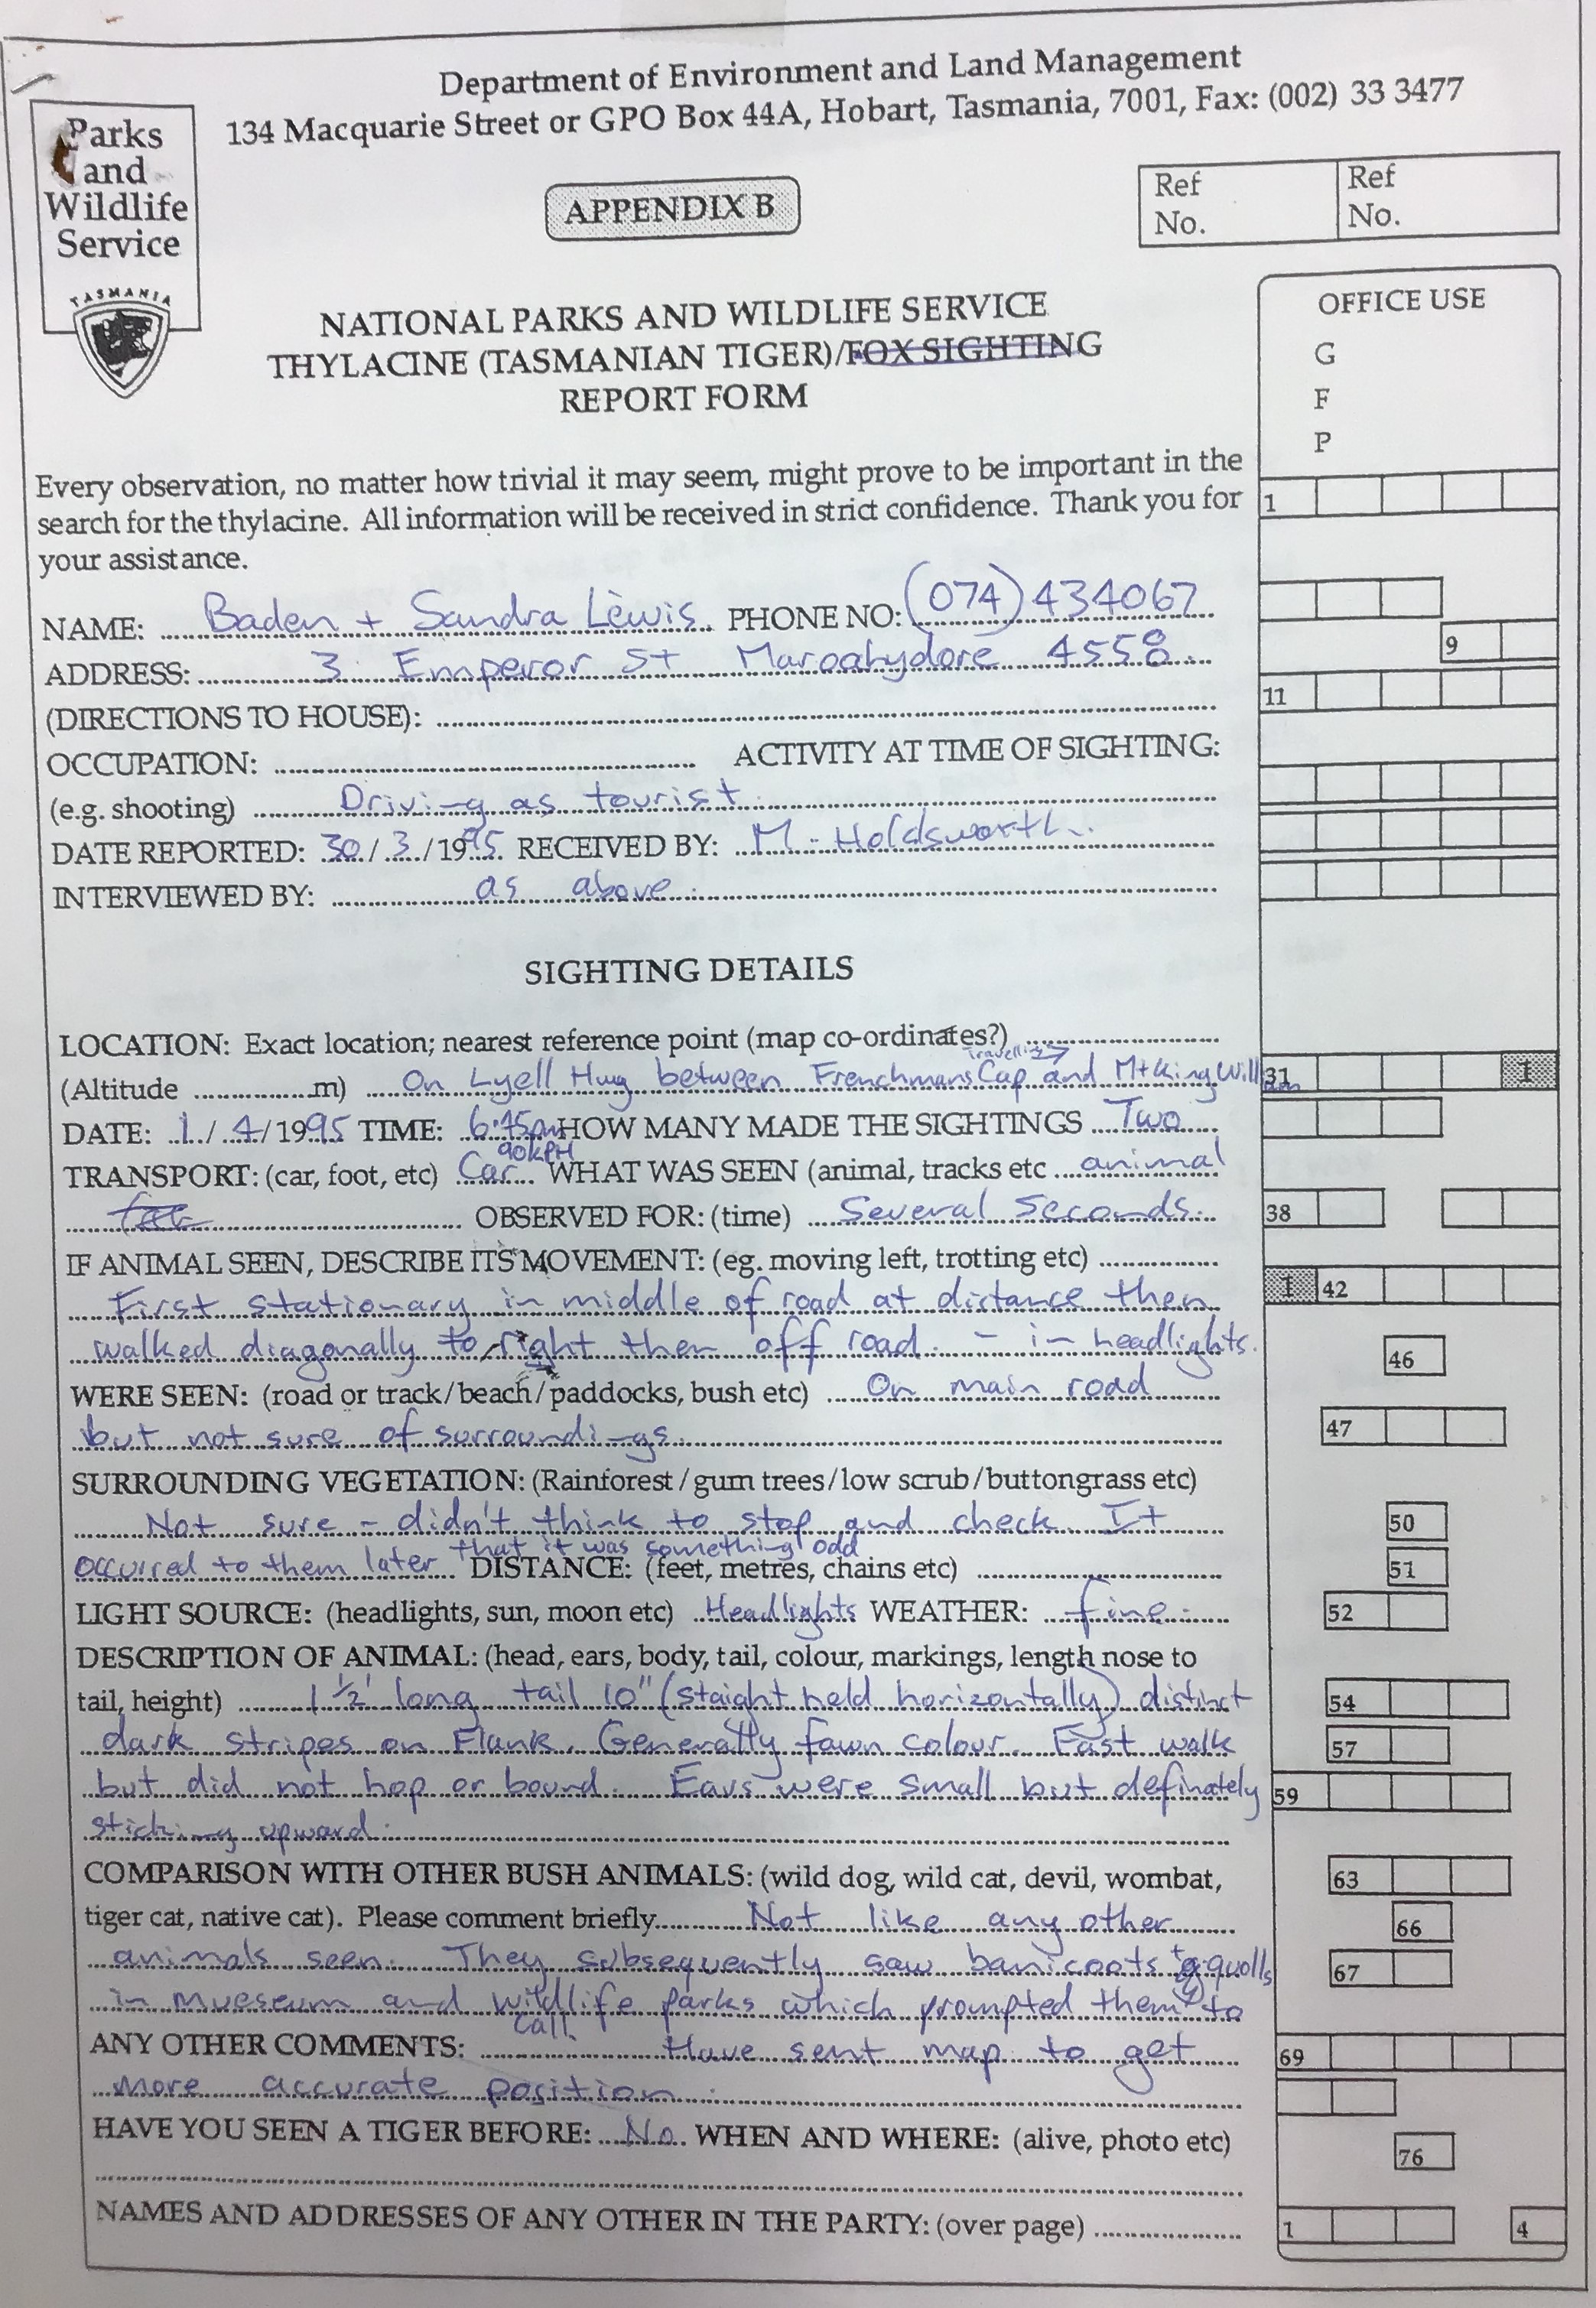 Department of Environment and Land Management
134 Macquarie Street or GPO Box 44A, Hobart, Tasmania, 7001, Fax: (002) 33 3477
Parks
and
Wildlife
Service
TASMANIA
APPENDIX B
Ref No.
Ref No.
NATIONAL PARKS AND WILDLIFE SERVICE
THYLACINE (TASMANIAN TIGER)/FOX SIGHTING
REPORT FORM
OFFICE USE
G
F
P
Every observation, no matter how trivial it may seem, might prove to be important in the
search for the thylacine. All information will be received in strict confidence. Thank you for
your assistance.
1
NAME: Baden + Sandra Lewis PHONE NO: (074) 434067
ADDRESS: 3 Emperor St Maroochydore 4558
9
(DIRECTIONS TO HOUSE):
11
OCCUPATION: ACTIVITY AT TIME OF SIGHTING:
(e.g. shooting) Driving as tourist
DATE REPORTED: 30/3/1995 RECEIVED BY: M. Holdsworth
INTERVIEWED BY: as above
SIGHTING DETAILS
LOCATION: Exact location; nearest reference point (map co-ordinates?)
travelling →
(Altitude m) On Lyell Hwy between Frenchmans Cap and Mt King William
31 1
DATE: 1/4/1995 TIME: 6.45pm HOW MANY MADE THE SIGHTINGS Two
90kPH
TRANSPORT: (car, foot, etc) Car WHAT WAS SEEN (animal, tracks etc animal
OBSERVED FOR: (time) Several Seconds.
38
IF ANIMAL SEEN, DESCRIBE ITS MOVEMENT: (eg. moving left, trotting etc)
1 42
First stationary in middle of road at distance then
walked diagonally to right then off road. - in headlights.
46
WERE SEEN: (road or track/beach/paddocks, bush etc) On main road
but not sure of surroundings.
47
SURROUNDING VEGETATION: (Rainforest/gum trees/low scrub/buttongrass etc)
Not sure - didn't think to stop and check. It
50
occurred to them later that it was something odd
DISTANCE: (feet, metres, chains etc)
51
LIGHT SOURCE: (headlights, sun, moon etc) Headlights WEATHER: fine.
52
DESCRIPTION OF ANIMAL: (head, ears, body, tail, colour, markings, length nose to
tail, height) 1 ½' long tail 10" (staight held horizontally) distinct
54
dark stripes on Flank. Generally fawn colour. Fast walk
57
but did not hop or bound. Ears were small but definately
59
sticking upward.
COMPARISON WITH OTHER BUSH ANIMALS: (wild dog, wild cat, devil, wombat,
63
tiger cat, native cat). Please comment briefly. Not like any other
66
animals seen. They subsequently saw banicoots + quolls
67
in mueseum and wildlife parks which prompted them to
call.
ANY OTHER COMMENTS: Have sent map to get
69
more accurate position.
HAVE YOU SEEN A TIGER BEFORE: No. WHEN AND WHERE: (alive, photo etc)
76
NAMES AND ADDRESSES OF ANY OTHER IN THE PARTY: (over page)
1 4